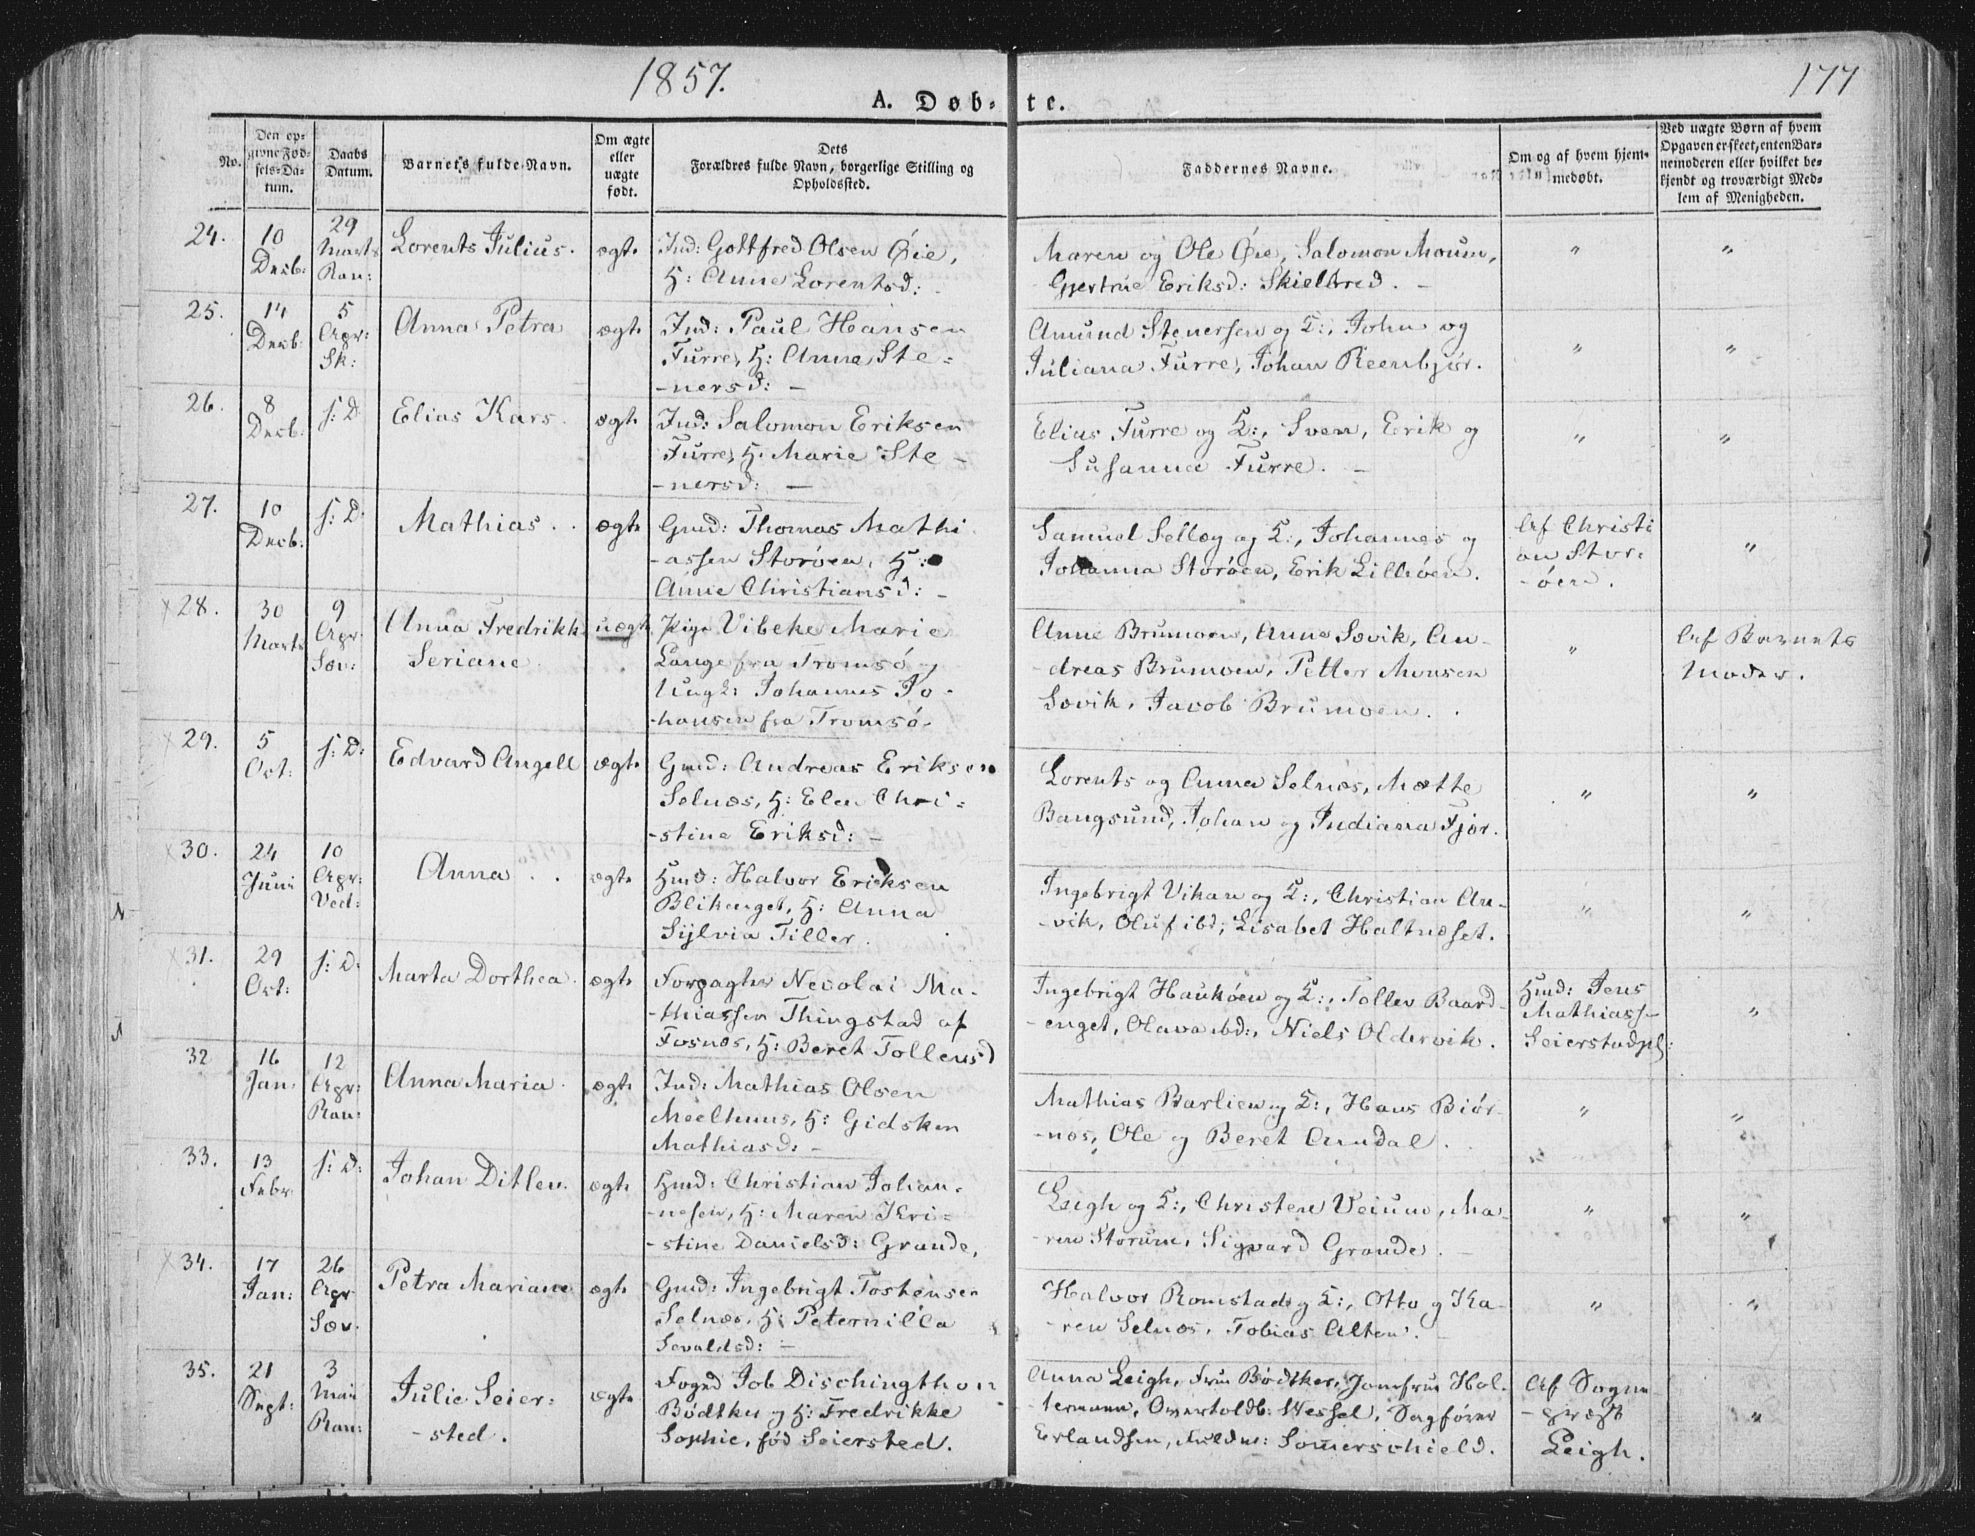 1857.
177
A. Døb-te.
No.
Den op-
givne Fød-
sels-Da-
tum.
Daabs
Datum.
Barnets fulde Navn.
Om ægte
eller
uægte
født.
Dets
Forældres fulde Navn, borgerlige Stilling og
Opholdssted.
Faddernes Navne.
Om og af hvem hjem-
medøbt.
Ved uægte Børn af hvem
Opgaven er skeet, enten Bar-
nemoderen eller hvilket be-
kjendt og troværdigt Med-
lem af Menigheden.
24.
10
Decb:
29
Marts
Ran:
Lorents Julius.
ægte
Ind: Gottfred Olsen Øie,
H: Anne Lorentsd: -
Maren og Ole Øie, Salomon Moum,
Gjertrue Eriksd: Skielbred. -
"
"
25.
14
Decb:
5
Apr:
Sk:
Anna Petra
ægte
Ind: Paul Hansen
Furre, H: Anne Ste-
-nersd: -
Amund Stenersen og K:, John og
Juliana Furre, Johan Reenbjør.
"
"
26.
8
Decb:
s: D
Elias Kars.
ægte
Ind: Salomon Eriksen
Furre, H: Marie Ste-
-nersd: -
Elias Furre og K:, Sven, Erik og
Susanna Furre. -
"
"
27.
10
Decb:
s: D:
Mathias.
ægte
Gmd: Thomas Mathi
-assen Storøen, H:
Anne Christiansd: -
Samuel Selløg og K:, Johannes og
Johanna Storøen, Erik Lilleøen.
Af Christi
an Stor-
-øen.
"
x 28.
30
Marts
9
Apr:
Sæv:
Anna Fredrikk
Seriane.
uægte
Pige Vibeke Marie
Lange fra Tromsø og
Ungk: Johannes Jo-
-hansen fra Tromsø.
Anne Brumoen, Anne Sævik, An-
-dreas Brumoen, Petter Monsen
Sævik, Jacob Brumoen.
"
Af Barnets
Moder.
x 29.
5
Oct:
s: D:
Edvard Angell
ægte
Gmd: Andreas Eriksen
Selnæs, H: Elen Chri-
-stine Eriksd: -
Lorents og Anna Selnæs, Mætte
Bangsund, Johan og Indiana Fjær.
"
"
x 30.
24
Juni
10
Apr:
Ved:
Anna
ægte
Hmd: Halvor Eriksen
Blikenget, H: Anna
Sylvia Tiller.
Ingebrigt Vikan og K:, Christian An-
-vik, Oluf ibd:, Lisabet Haltnæset.
"
"
x 31.
29
Oct:
s: D:
Marta Dorthea.
ægte
Forpagter Nicolai Ma-
-thiassen Thingstad af
Fosnæs, H: Beret Tollefsd
Ingebrigt Haukøen og K:, Tollev Baard-
-enget, Olava ibd:, Niels Oldervik.
Hmd: Jens
Mathiass-
Seierstadpl:
"
32
16
Jan:
12
Apr:
Ran:
Anna Maria.
ægte
Ind: Mathias Olsen
Meelhuus, H: Gidsken
Mathiasd: -
Mathias Barlien og K:, Hans Biør-
-nes, Ole og Beret Aundal.
"
"
33.
13
Febr
s: D:
Johan Ditlev.
ægte
Hmd: Christian Johan-
-nesen, H: Maren Kri-
-stine Danielsd: Grande,
Leigh og K:, Christen Veium, Ma-
-ren Storum, Sigvard Grande. -
"
"
x 34.
17
Jan:
26
Apr
Sæv.
Petra Mariane
ægte
Gmd: Ingebrigt Tostensen
Selnæs, H: Peternilla
Sevaldsd: -
Halvor Romstad og K:, Otto og Ka-
-ren Selnæs, Tobias Alten. -
"
"
35.
21
Sept:
3
Mai
Ran:
Julie Seier-
-sted.
ægte
Foged Job Dischingthon
Bødtker og H: Fredrikke
Sophie, fød Seiersted.
Anna Leigh, Fru Bødtker, Jomfrue Hol-
-termann, Overtoldb: Wessel, Sagfører
Erlandsen, Fuldm: Somerschield.
Af Sogne
-præst
Leigh.
"